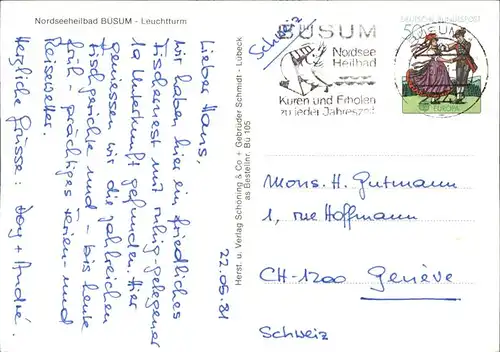 Nordseeheilbad BÜSUM - Leuchtturm
22.06.81
Lieber Hans,
Wir haben hier ein friedliches
Fischernest mit ruhig-gelegener
1a Unterkunft gefunden. Hier
geniessen wir die zahlreichen
Fischgerichte und - bis heute
früh - prächtiges Ferien- und
Reisewetter.
Herzliche Grüsse: Josy + André.
Herst. u. Verlag Schöning & Co + Gebrüder Schmidt · Lübeck
as Bestellnr. Bü 105
Schweiz
BÜSUM
Nordsee
Heilbad
Kuren und Erholen
zu jeder Jahreszeit
DEUTSCHE BUNDESPOST
50
EUROPA
Mons. H. Gutmann
1, rue Hoffmann
CH-1200 Genève
Schweiz